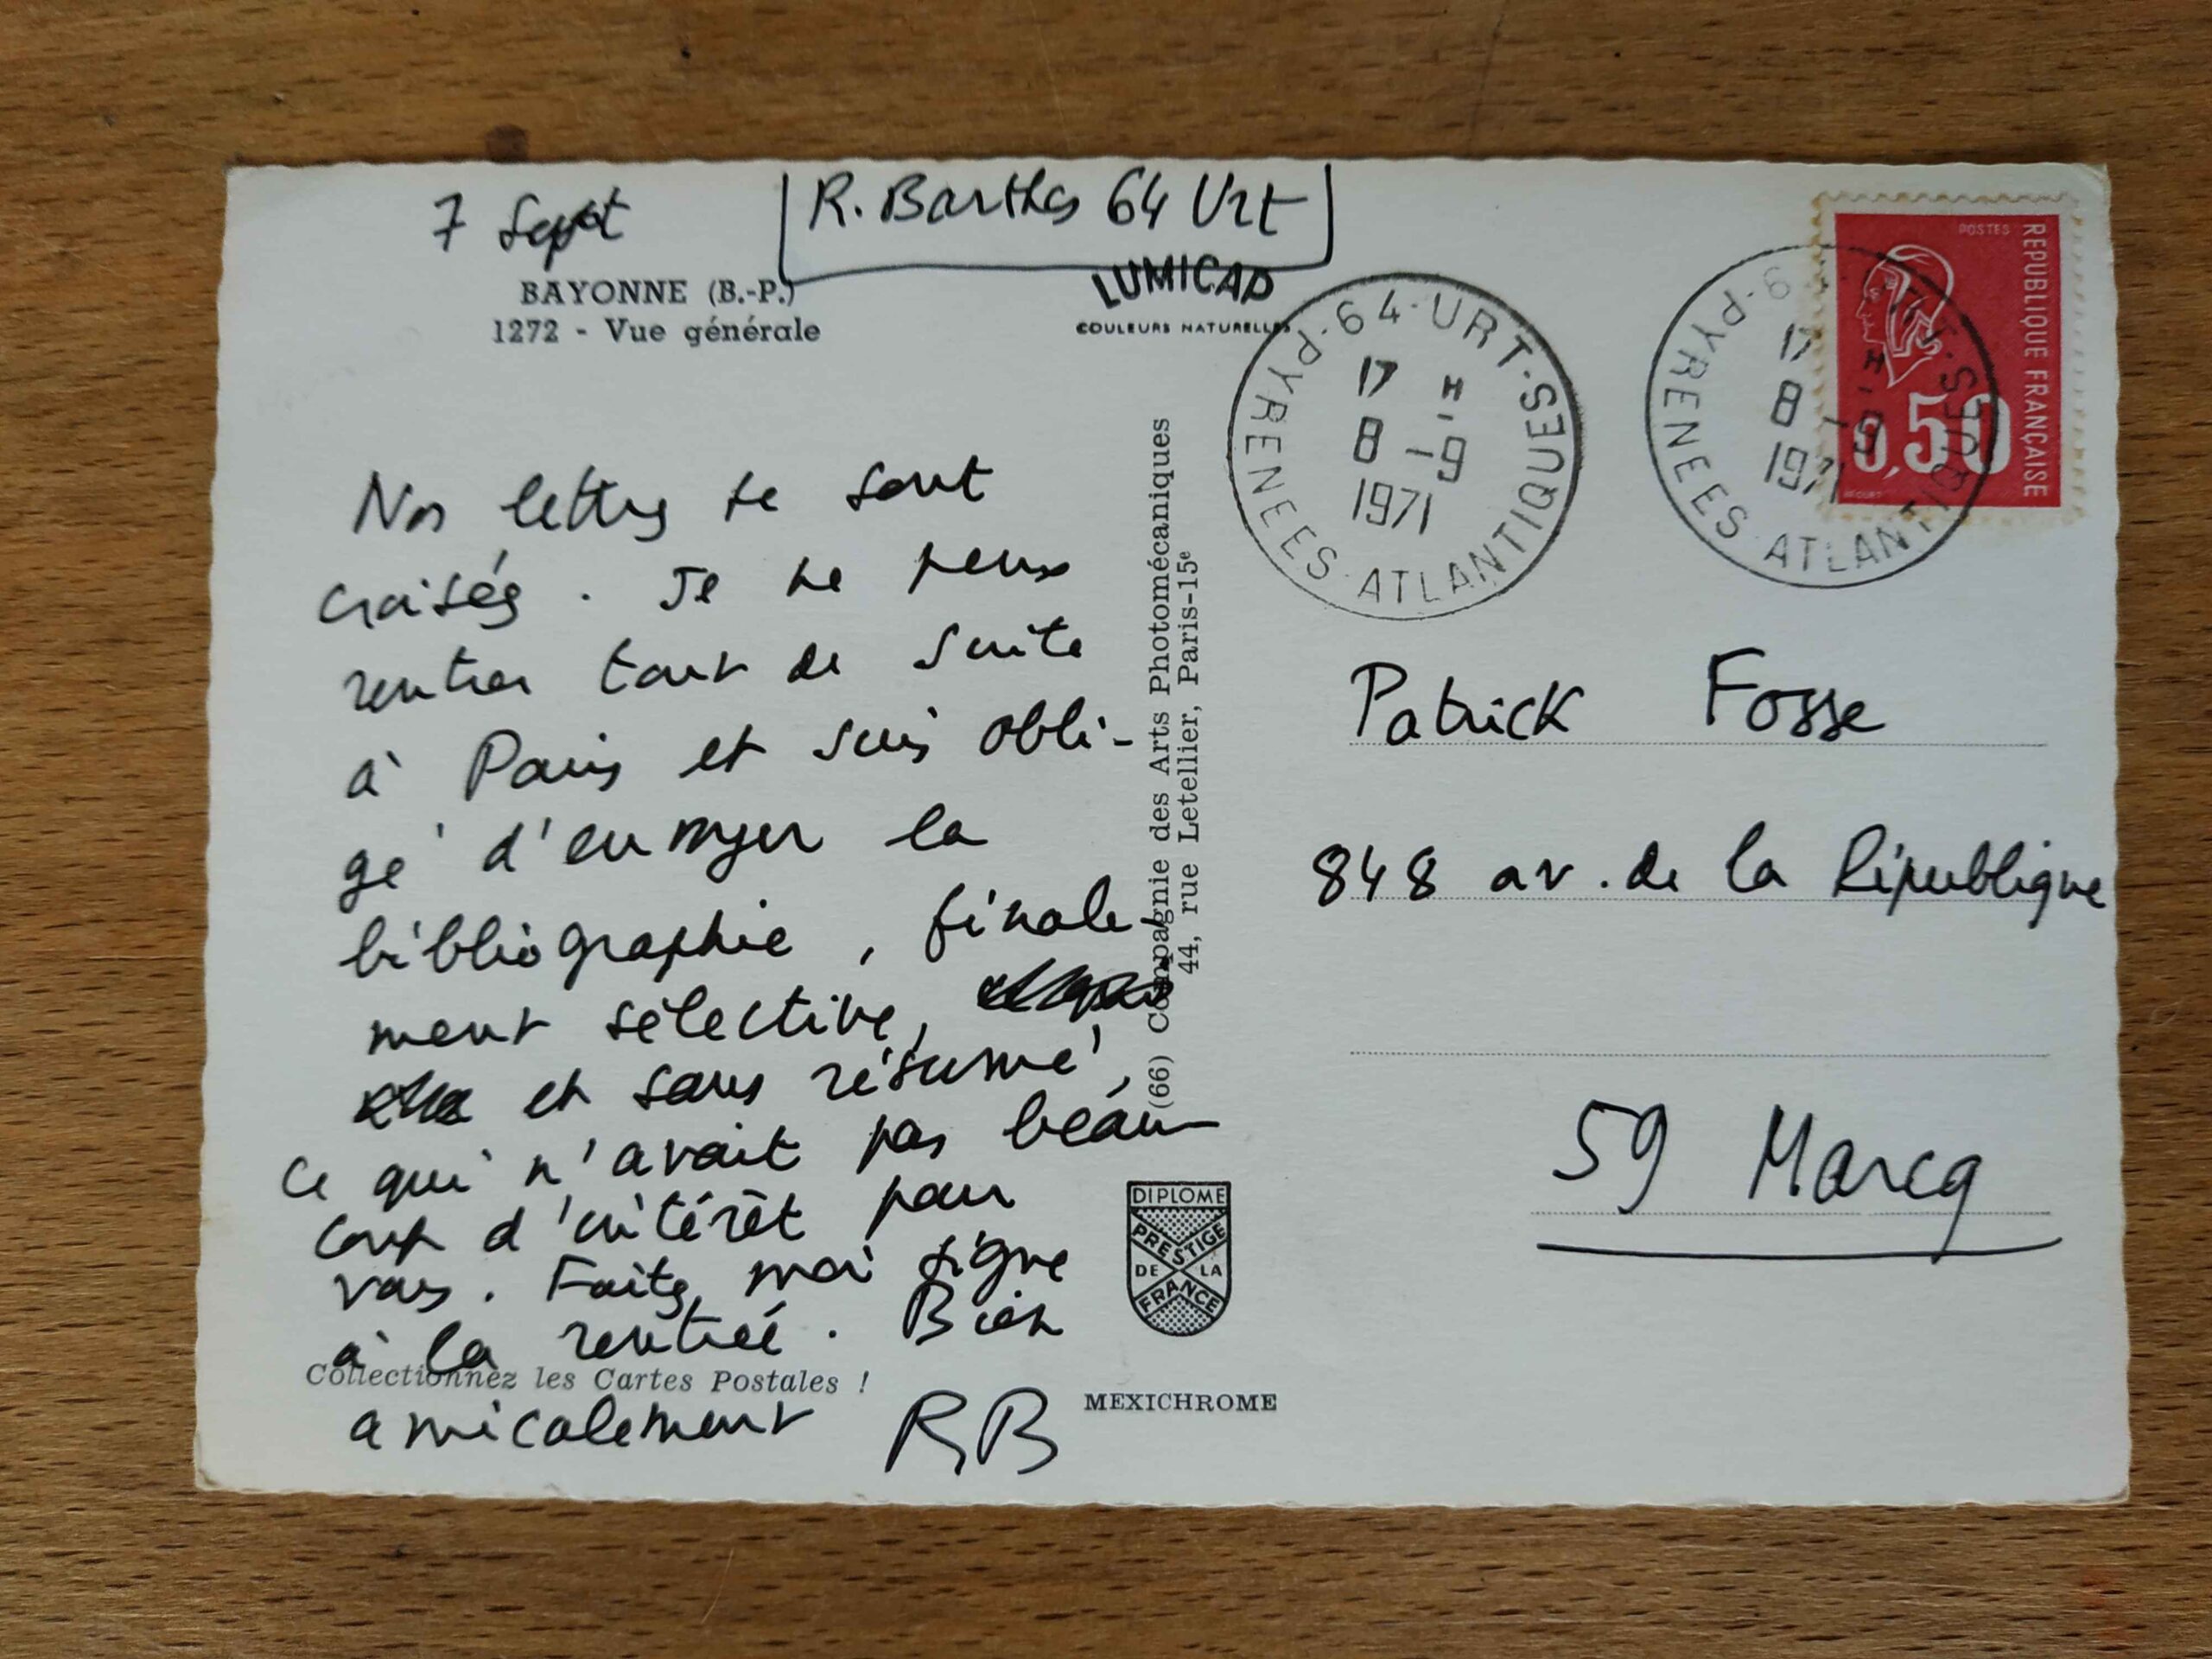 7 Sept
R. Barthes 64 Urt
BAYONNE (B.-P.)
1272 - Vue générale
LUMICAP
COULEURS NATURELLES
Nos lettres se sont
croisées. Je ne peux
rentrer tout de suite
à Paris et suis obli-
gé d'envoyer la
bibliographie, finale-
ment sélective,
et sans résumé,
ce qui n'avait pas beau-
coup d'intérêt pour
vous. Faites moi signe
à la rentrée. Bien
Collectionnez les Cartes Postales !
amicalement RB
MEXICHROME
(66) Compagnie des Arts Photomécaniques
44, rue Letellier, Paris-15e
DIPLOME
PRESTIGE
DE LA
FRANCE
64-URT-P-PYRENEES ATLANTIQUES
17 H
8 -9
1971
17 H
8 -9
1971
PYRENEES ATLANTIQUES
POSTES
REPUBLIQUE FRANÇAISE
0,50
Patrick Fosse
848 av. de la République
59 Marcq